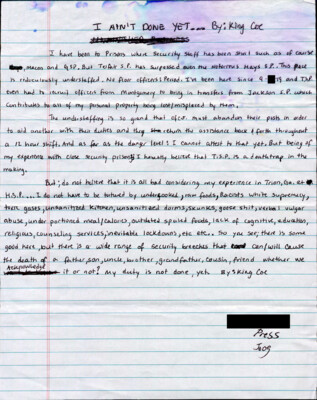 I AIN'T DONE YET... By: King Coe
I have been to Prisons where security staff has been short such as of course
Macon and GSP. But Telfair S.P. has surpassed even the notorious Hays S.P. This place
is ridiculously understaffed. No fear officers! Period. I've been here since 9 19 and TSP
even had to recruit officers from Montgomery to bring in transfers from Jackson S.P. which
contributes to all of my personal property being lost/misplaced by them.
The understaffing is so grand that ofcr. must abandon their posts in order
to aid another with their duties and they return the assistance back & forth throughout
a 12 hour shift. And as far as the danger level: I cannot attest to that yet. But being of
my experience with close security prisons; I honestly believe that T.S.P. is a deathtrap in the
making.
But; do not believe that it is all bad considering my experience in Trion, Ga. at
H.S.P. I do not have to be tortured by undercooked, raw foods, Racists white supremacy,
tear gases, unsanitized kitchen, unsanitized dorms, skunks, goose shit, verbal vulgar
abuse, under portioned meals/calories, outdated spoiled foods, lack of cognitive, education,
religious, counseling services, inevitable lockdowns, etc etc. So you see, there is some
good here, but there is a wide range of security breeches that can/will cause
the death of a father, son, uncle, brother, grandfather, cousin, friend whether we
Acknowledged it or not! My duty is not done, yet. By: King Coe
Press